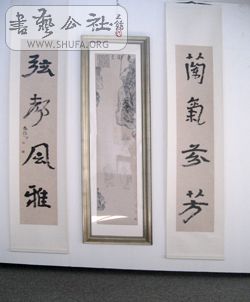 書藝公社
WWW.SHUFA.ORG
蘭氣芬芳
弦歌風雅